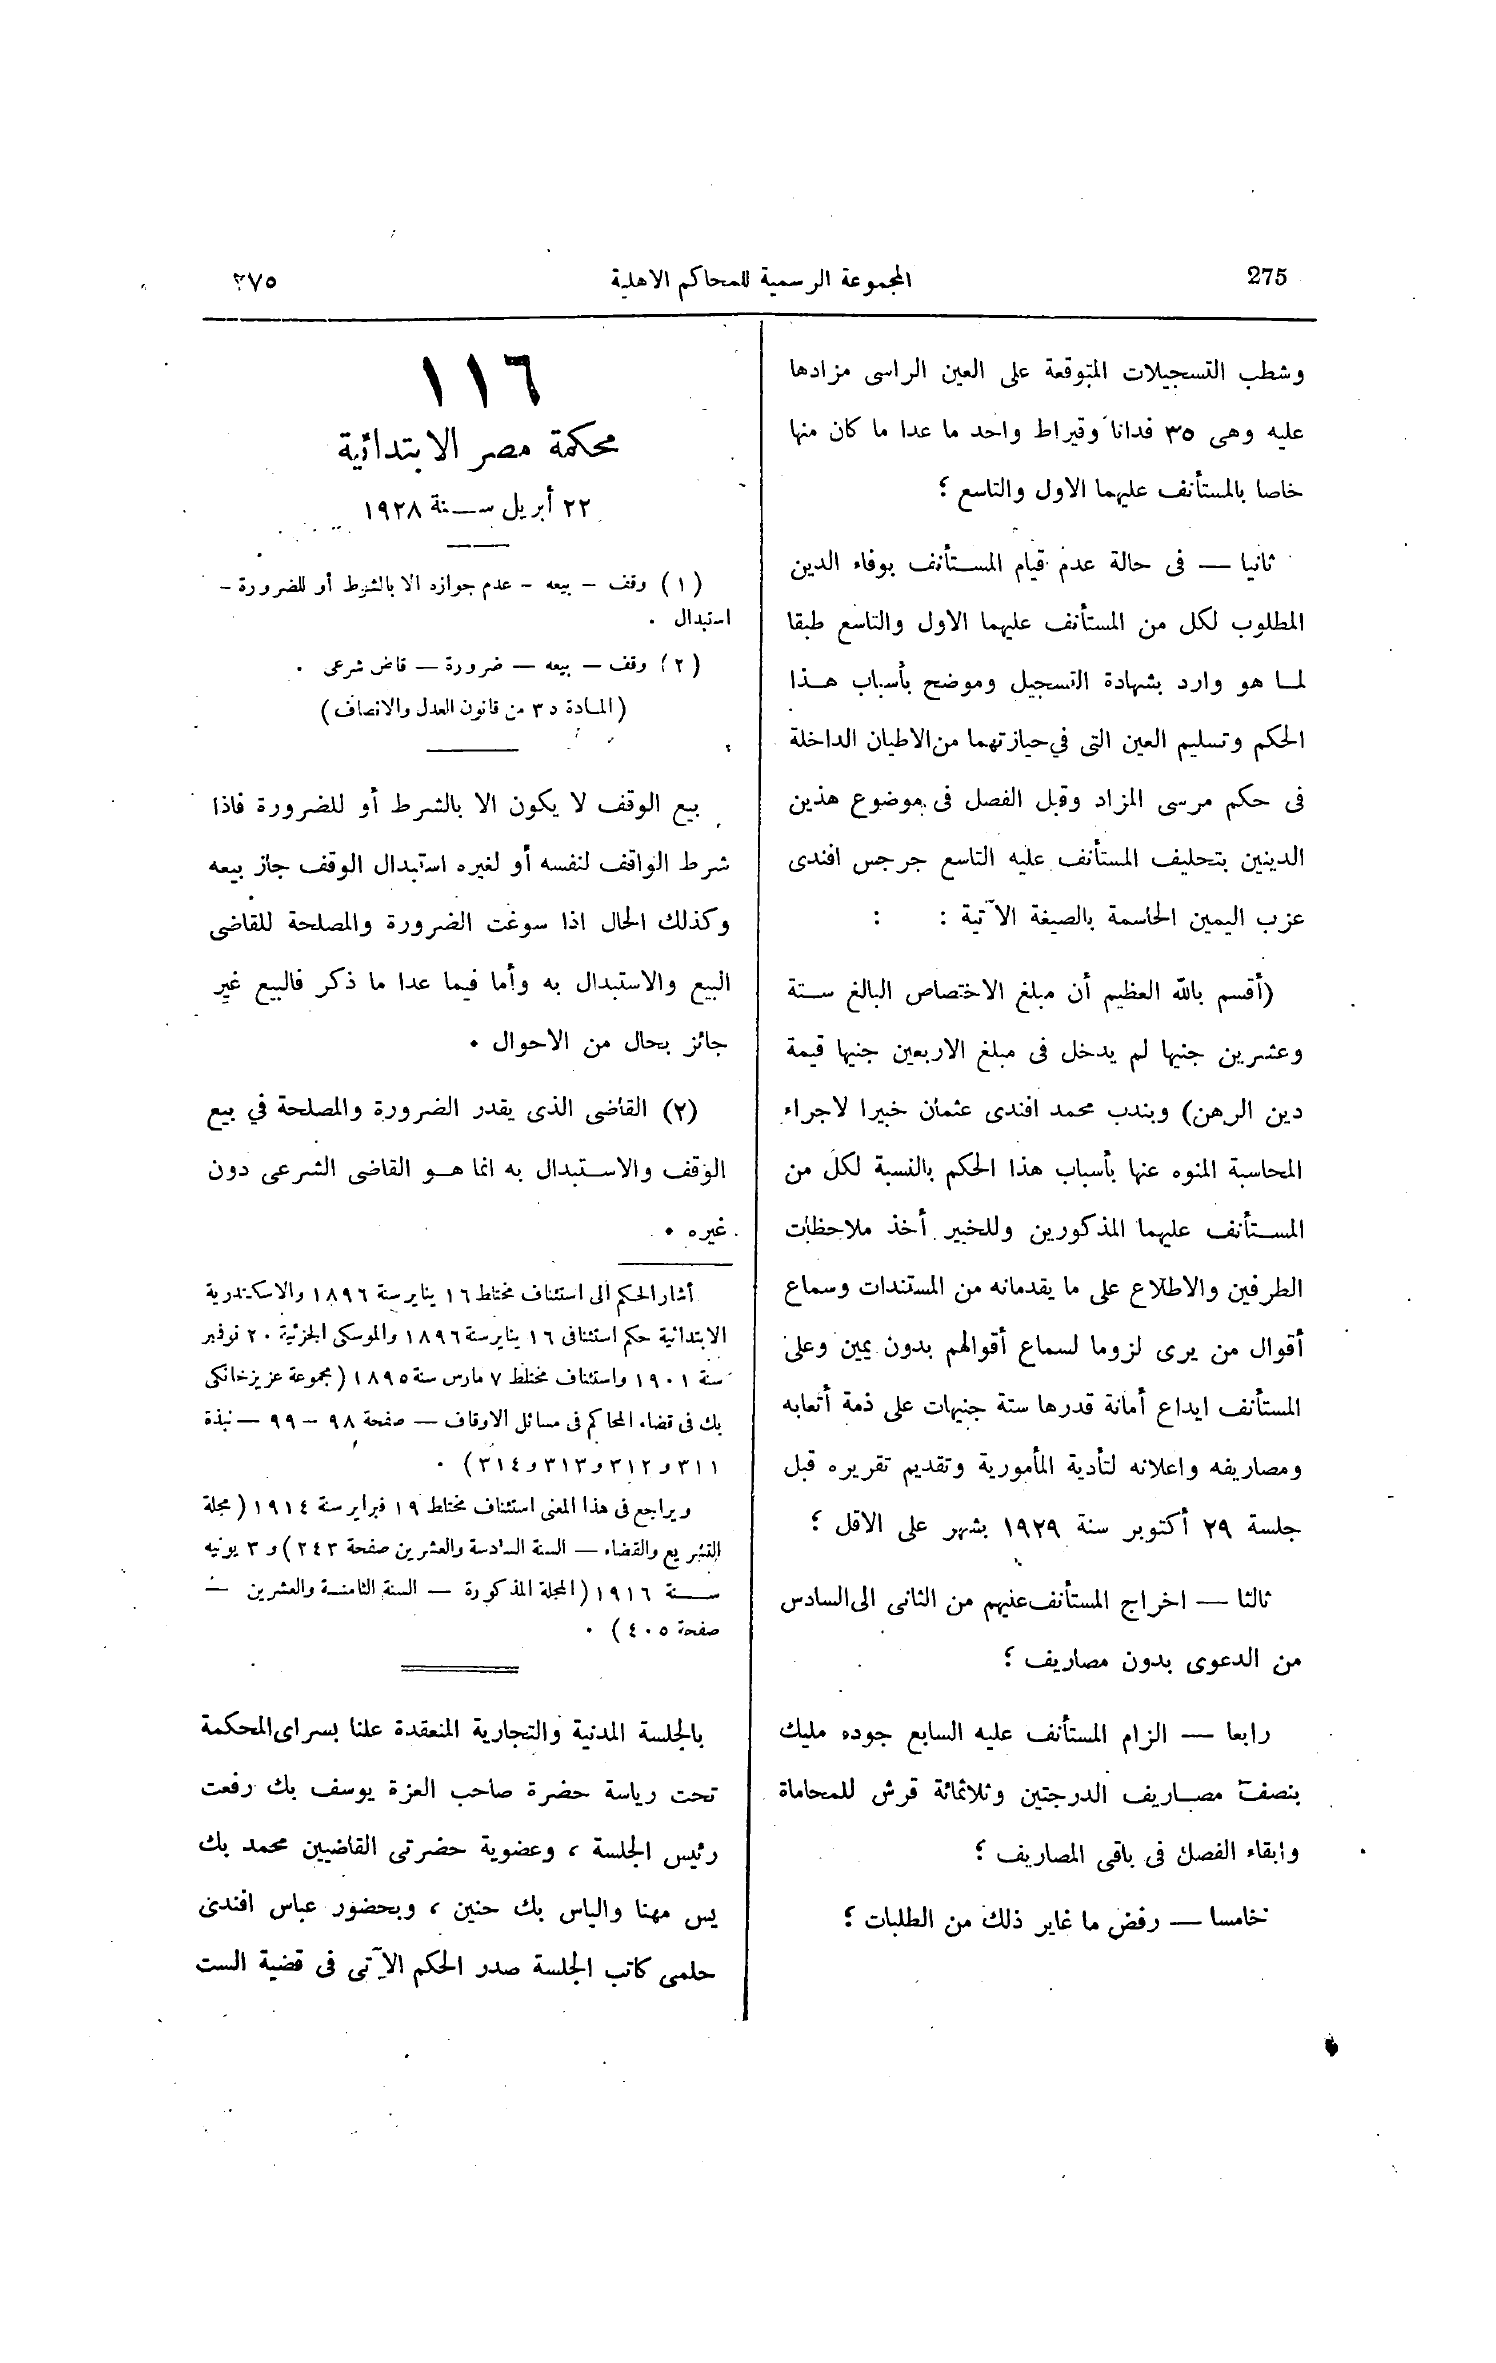 275
المجموعة الرسمية للمحاكم الاهلية
٢٧٥
وشطب التسجيلات المتوقعة على العين الراسى مزادها
عليه وهى ٣٥ فدانا وقيراط واحد ما عدا ما كان منها
خاصا بالمستأنف عليهما الاول والتاسع ؛
ثانيا — فى حالة عدم قيام المستأنف بوفاء الدين
المطلوب لكل من المستأنف عليهما الاول والتاسع طبقا
لما هو وارد بشهادة التسجيل وموضح بأسباب هذا
الحكم وتسليم العين التى في حيازتهما من الاطيان الداخلة
فى حكم مرسى المزاد وقبل الفصل فى موضوع هذين
الدينين بتحليف المستأنف عليه التاسع جرجس افندى
عزب اليمين الحاسمة بالصيغة الآتية :
(أقسم بالله العظيم أن مبلغ الاختصاص البالغ ستة
وعشرين جنيها لم يدخل فى مبلغ الاربعين جنيها قيمة
دين الرهن) وبندب محمد افندى عثمان خبيرا لاجراء
المحاسبة المنوه عنها بأسباب هذا الحكم بالنسبة لكل من
المستأنف عليهما المذكورين وللخبير أخذ ملاحظات
الطرفين والاطلاع على ما يقدمانه من المستندات وسماع
أقوال من يرى لزوما لسماع أقوالهم بدون يمين وعلى
المستأنف ايداع أمانة قدرها ستة جنيهات على ذمة أتعابه
ومصاريفه واعلانه لتأدية المأمورية وتقديم تقريره قبل
جلسة ٢٩ أكتوبر سنة ١٩٢٩ بشهر على الاقل ؛
ثالثا — اخراج المستأنف عنيهم من الثانى الى السادس
من الدعوى بدون مصاريف ؛
رابعا — الزام المستأنف عليه السابع جوده مليك
بنصف مصاريف الدرجتين وثلاثمائة قرش للمحاماة
وابقاء الفصل فى باقى المصاريف ؛
خامسا — رفض ما غاير ذلك من الطلبات ؛
١١٦
محكمة مصر الابتدائية
٢٢ أبريل سنة ١٩٢٨
(١) وقف – بيعه – عدم جوازه الا بالشرط أو للضرورة –
استبدال .
(٢) وقف – بيعه – ضرورة – قاض شرعى .
(المادة ٣٥ من قانون العدل والانصاف)
بيع الوقف لا يكون الا بالشرط أو للضرورة فاذا
شرط الواقف لنفسه أو لغيره استبدال الوقف جاز بيعه
وكذلك الحال اذا سوغت الضرورة والمصلحة للقاضى
البيع والاستبدال به وأما فيما عدا ما ذكر فالبيع غير
جائز بحال من الاحوال .
(٢) القاضى الذى يقدر الضرورة والمصلحة في بيع
الوقف والاستبدال به انما هو القاضى الشرعى دون
غيره .
أشار الحكم الى استئناف مختلط ١٦ يناير سنة ١٨٩٦ والاسكندرية
الابتدائية حكم استئنافى ١٦ يناير سنة ١٨٩٦ والموسكى الجزئية ٢٠ نوفمبر
سنة ١٩٠١ واستئناف مختلط ٧ مارس سنة ١٨٩٥ (مجموعة عزيز خانكى
بك فى قضاء المحاكم فى مسائل الاوقاف — صفحة ٩٨ – ٩٩ — نبذة
٣١١ و ٣١٢ و ٣١٣ و ٣١٤) .
ويراجع فى هذا المعنى استئناف مختلط ١٩ فبراير سنة ١٩١٤ (مجلة
التشريع والقضاء — السنة السادسة والعشرين صفحة ٢٤٣) و ٣ يونيه
سنة ١٩١٦ (المجلة المذكورة — السنة الثامنة والعشرين —
صفحة ٤٠٥) .
بالجلسة المدنية والتجارية المنعقدة علنا بسراى المحكمة
تحت رياسة حضرة صاحب العزة يوسف بك رفعت
رئيس الجلسة ، وعضوية حضرتى القاضيين محمد بك
يس مهنا والياس بك حنين ، وبحضور عباس افندى
حلمى كاتب الجلسة صدر الحكم الآتى فى قضية الست